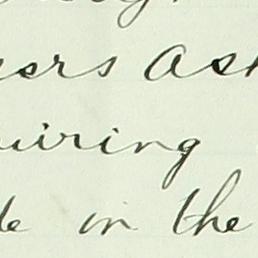 ers ask
uiring
de in the